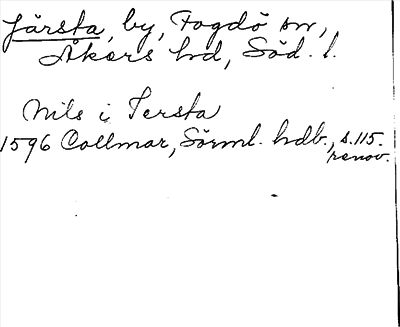 Järsta, by, Fogdö sn,
Åkers hd, Söd. l.
Nils i Tersta
1596 Collmar, Sörml. hdb., s. 115.
renov.